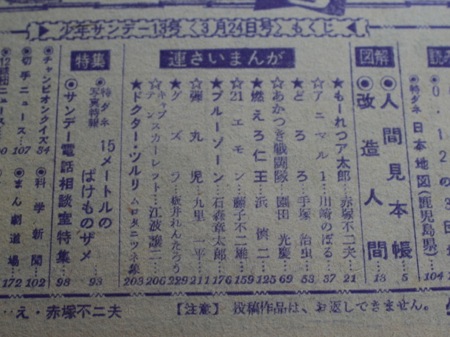 少年サンデー13号〈3月24日号〉もくじ
特ダネ 日本地図(鹿児島県) 104
図解
☆人間見本帳 5
☆改造人間 13
連さいまんが
★もーれつア太郎 赤塚不二夫 21
☆アニマル1 川崎のぼる 37
★どろろ 手塚治虫 53
☆あかつき戦闘隊 園田光慶 69
★燃えろ仁王 浜慎二 125
☆21エモン 藤子不二雄 159
★ブルーゾーン 石森章太郎 176
☆弾丸児 九里一平 211
★グズラ 板井れんたろう 229
☆キャプテンスカーレット 江波譲二 206
★ドクター・ツルリ ムロタニツネ象 203
特集
◉特ダネ写真特報 15メートルのばけものザメ 93
◉サンデー電話相談室特集 98
◉チャンピオンクイズ 34
◉科学新聞 102
◉切手ニュース 107
◉まん劇道場 172
ニュース
え・赤塚不二夫
【注意】 投稿作品は、お返しできません。